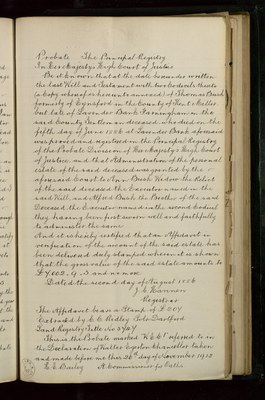 Probate The Principal Registry
In Her Majesty's High Court of Justice
Be it known that at the date hereunder written
the last Will and Testament with two Codicils thereto
(a Copy whereof is hereunto annexed) of Thomas Bush
formerly of Eynsford in the County of Kent Miller
but late of Lavender Bank in the
said County deceased who died on the
fifth day of June 1886 at Lavender Bank aforesaid
was proved and registered in the Principal Registry
of the Probate Division of Her Majesty's High Court
of Justice and that Administration of the personal
estate of the said deceased was granted by the
aforesaid Court to Ann Bush Widow the Relict
of the said deceased the Executrix named in the
said Will and Alfred Bush the Brother of the said
Deceased the Executor named in the second Codicil
they having been first sworn well and faithfully
to administer the same
And it is hereby certified that an Affidavit in
verification of the account of the said estate has
been delivered duly stamped wherein it is shewn
that the gross value of the said estate amounts to
£7002. 9. 5 and no more
Dated the second day of August 1886
Registrar
The Affidavit bears a Stamp of £207
Extracted by C. E. Ridley Solr Dartford
Land Registry Title No
This is the Probate marked referred to in
the Declaration of Walter taken
and made before me this 26th day of November 1913
A Commissioner for Oaths